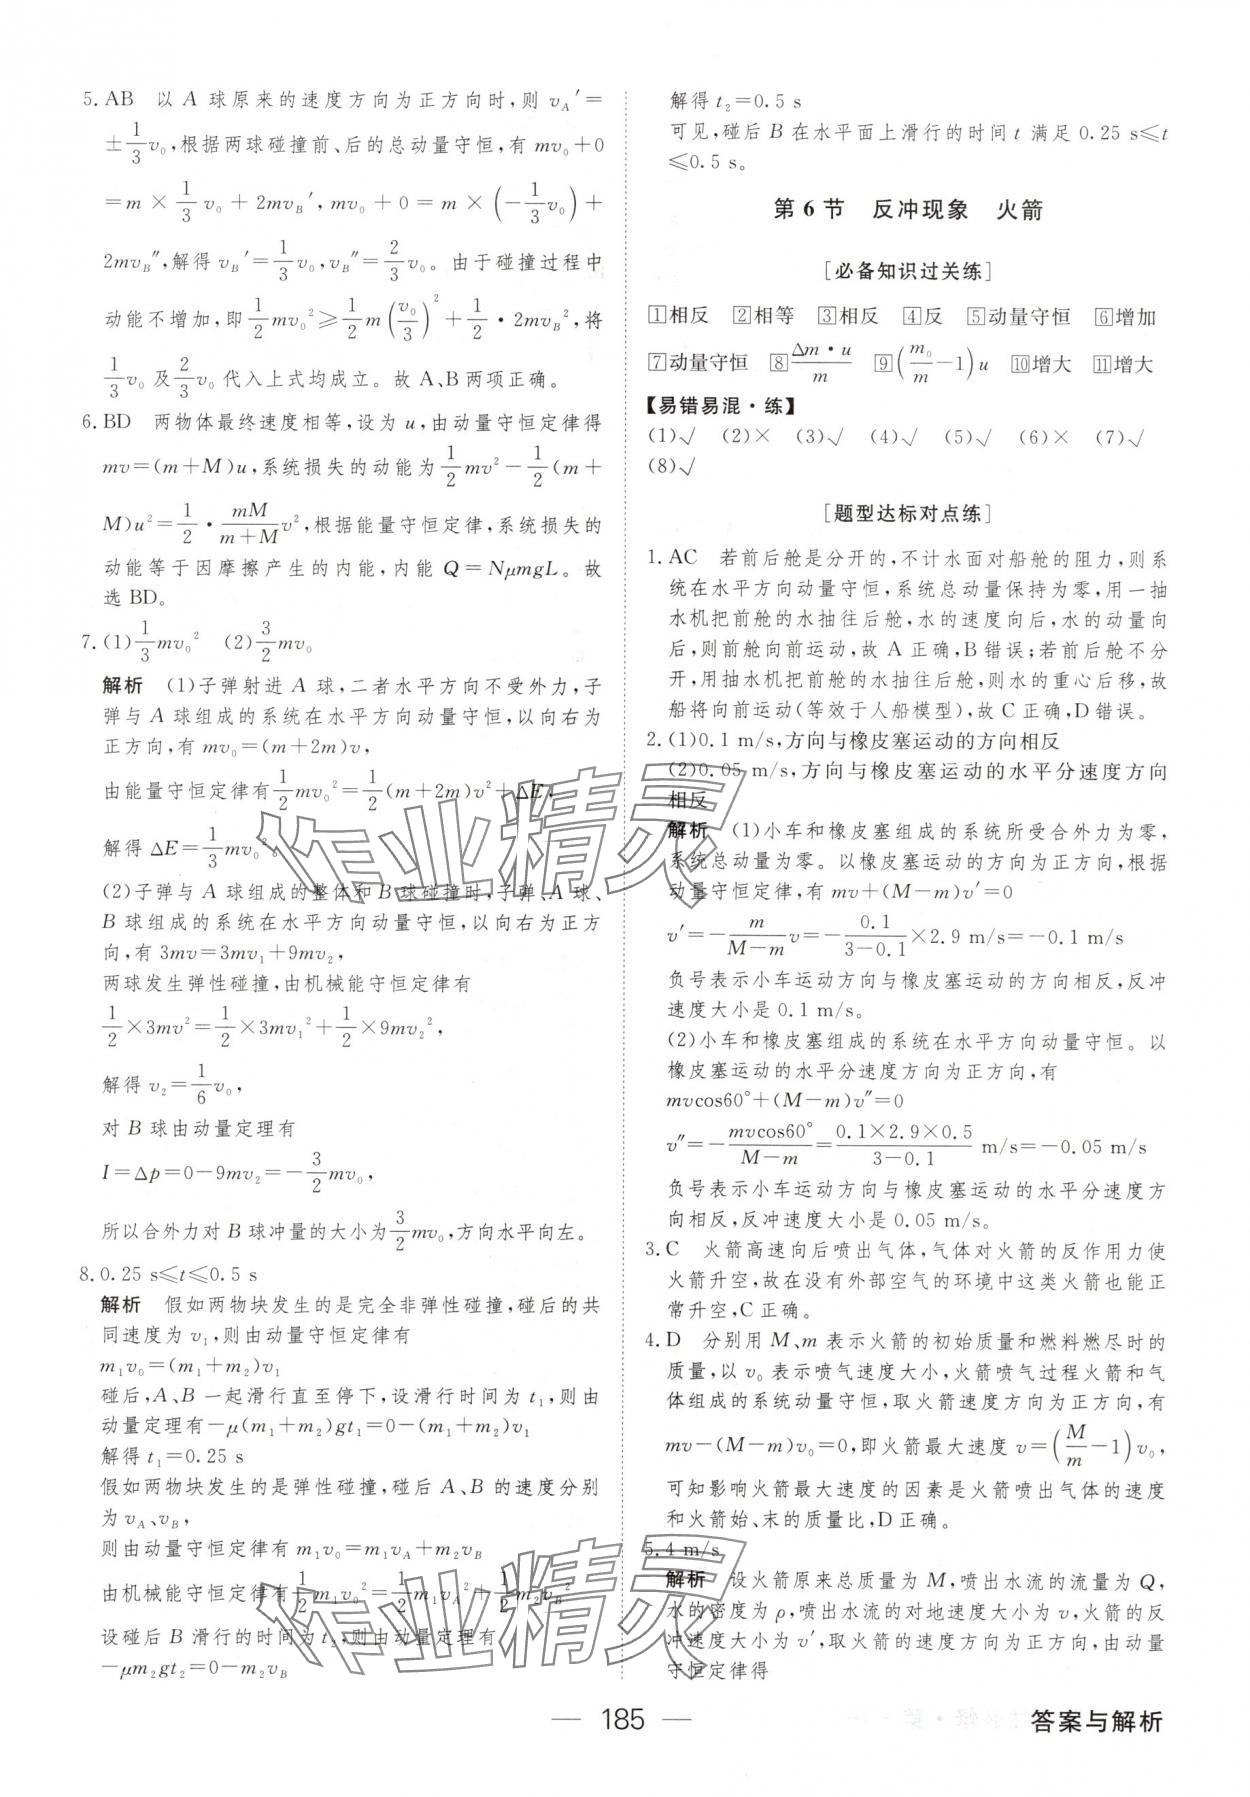 5. AB　以 A 球原来的速度方向为正方向时,则 v_A′=
±1/3 v₀,根据两球碰撞前、后的总动量守恒,有 mv₀+0
=m×1/3 v₀+2mv_B′,mv₀+0=m×(−1/3 v₀)+
2mv_B″,解得 v_B′=1/3 v₀,v_B″=2/3 v₀。由于碰撞过程中
动能不增加,即 1/2 mv₀²≥1/2 m(v₀/3)²+1/2·2mv_B²,将
1/3 v₀ 及 2/3 v₀ 代入上式均成立。故 A、B 两项正确。
6. BD　两物体最终速度相等,设为 u,由动量守恒定律得
mv=(m+M)u,系统损失的动能为 1/2 mv²−1/2(m+
M)u²=1/2·mM/(m+M) v²,根据能量守恒定律,系统损失的
动能等于因摩擦产生的内能,内能 Q=NμmgL。故
选 BD。
7. (1)1/3 mv₀²　(2)3/2 mv₀
解析　(1)子弹射进 A 球,二者水平方向不受外力,子
弹与 A 球组成的系统在水平方向动量守恒,以向右为
正方向,有 mv₀=(m+2m)v,
由能量守恒定律有 1/2 mv₀²=1/2(m+2m)v²+ΔE,
解得 ΔE=1/3 mv₀²。
(2)子弹与 A 球组成的整体和 B 球碰撞时,子弹、A 球、
B 球组成的系统在水平方向动量守恒,以向右为正方
向,有 3mv=3mv₁+9mv₂,
两球发生弹性碰撞,由机械能守恒定律有
1/2×3mv²=1/2×3mv₁²+1/2×9mv₂²,
解得 v₂=1/6 v₀,
对 B 球由动量定理有
I=Δp=0−9mv₂=−3/2 mv₀,
所以合外力对 B 球冲量的大小为 3/2 mv₀,方向水平向左。
8. 0.25 s≤t≤0.5 s
解析　假如两物块发生的是完全非弹性碰撞,碰后的共
同速度为 v₁,则由动量守恒定律有
m₁v₀=(m₁+m₂)v₁
碰后,A、B 一起滑行直至停下,设滑行时间为 t₁,则由
动量定理有−μ(m₁+m₂)gt₁=0−(m₁+m₂)v₁
解得 t₁=0.25 s
假如两物块发生的是弹性碰撞,碰后 A、B 的速度分别
为 v_A、v_B,
则由动量守恒定律有 m₁v₀=m₁v_A+m₂v_B
由机械能守恒定律有 1/2 m₁v₀²=1/2 m₁v_A²+1/2 m₂v_B²
设碰后 B 滑行的时间为 t₂,则由动量定理有
−μm₂gt₂=0−m₂v_B
解得 t₂=0.5 s
可见,碰后 B 在水平面上滑行的时间 t 满足 0.25 s≤t
≤0.5 s。
第 6 节　反冲现象　火箭
[必备知识过关练]
1相反　2相等　3相反　4反　5动量守恒　6增加
7动量守恒　8 Δm·u/m　9 (m₀/m−1)u　10增大　11增大
【易错易混·练】
(1)√　(2)×　(3)√　(4)√　(5)√　(6)×　(7)√
(8)√
[题型达标对点练]
1. AC　若前后舱是分开的,不计水面对船舱的阻力,则系
统在水平方向动量守恒,系统总动量保持为零,用一抽
水机把前舱的水抽往后舱,水的速度向后,水的动量向
后,则前舱向前运动,故 A 正确,B 错误;若前后舱不分
开,用抽水机把前舱的水抽往后舱,则水的重心后移,故
船将向前运动(等效于人船模型),故 C 正确,D 错误。
2. (1)0.1 m/s,方向与橡皮塞运动的方向相反
(2)0.05 m/s,方向与橡皮塞运动的水平分速度方向
相反
解析　(1)小车和橡皮塞组成的系统所受合外力为零,
系统总动量为零。以橡皮塞运动的方向为正方向,根据
动量守恒定律,有 mv+(M−m)v′=0
v′=−m/(M−m) v=−0.1/(3−0.1)×2.9 m/s=−0.1 m/s
负号表示小车运动方向与橡皮塞运动的方向相反,反冲
速度大小是 0.1 m/s。
(2)小车和橡皮塞组成的系统在水平方向动量守恒。以
橡皮塞运动的水平分速度方向为正方向,有
mvcos60°+(M−m)v″=0
v″=−mvcos60°/(M−m)=0.1×2.9×0.5/(3−0.1) m/s=−0.05 m/s
负号表示小车运动方向与橡皮塞运动的水平分速度方
向相反,反冲速度大小是 0.05 m/s。
3. C　火箭高速向后喷出气体,气体对火箭的反作用力使
火箭升空,故在没有外部空气的环境中这类火箭也能正
常升空,C 正确。
4. D　分别用 M、m 表示火箭的初始质量和燃料燃尽时的
质量,以 v₀ 表示喷气速度大小,火箭喷气过程火箭和气
体组成的系统动量守恒,取火箭速度方向为正方向,有
mv−(M−m)v₀=0,即火箭最大速度 v=(M/m−1)v₀,
可知影响火箭最大速度的因素是火箭喷出气体的速度
和火箭始、末的质量比,D 正确。
5. 4 m/s
解析　设火箭原来总质量为 M,喷出水流的流量为 Q,
水的密度为 ρ,喷出水流的对地速度大小为 v,火箭的反
冲速度大小为 v′,取火箭的速度方向为正方向,由动量
守恒定律得
作业精灵
作业精灵
— 185 —
答案与解析